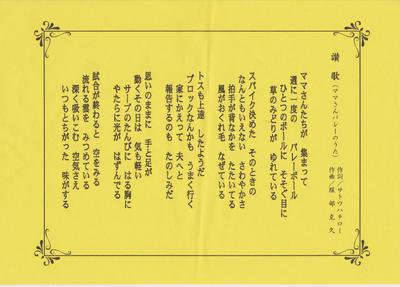 讃歌(ママさんバレーのうた)
作詞/サトウハチロー
作曲/服部克久
ママさんたちが 集まって
週に一度の バレーボール
ひとつのボールに そそぐ目に
草のみどりが ゆれている
スパイク決めた そのときの
なんともいえない さわやかさ
拍手が背なかを たたいてる
風がおくれ毛 なぜている
トスも上達 したようだ
ブロックなんかも うまく行く
家にかえって 夫へと
報告するのも たのしみだ
思いのままに 手と足が
動くその日は 気も軽い
サーブのたんびに はる胸に
やたらに光が はずんでる
試合が終わると 空をみる
流れる雲を みつめている
深く吸いこむ 空気さえ
いつもとちがった 味がする